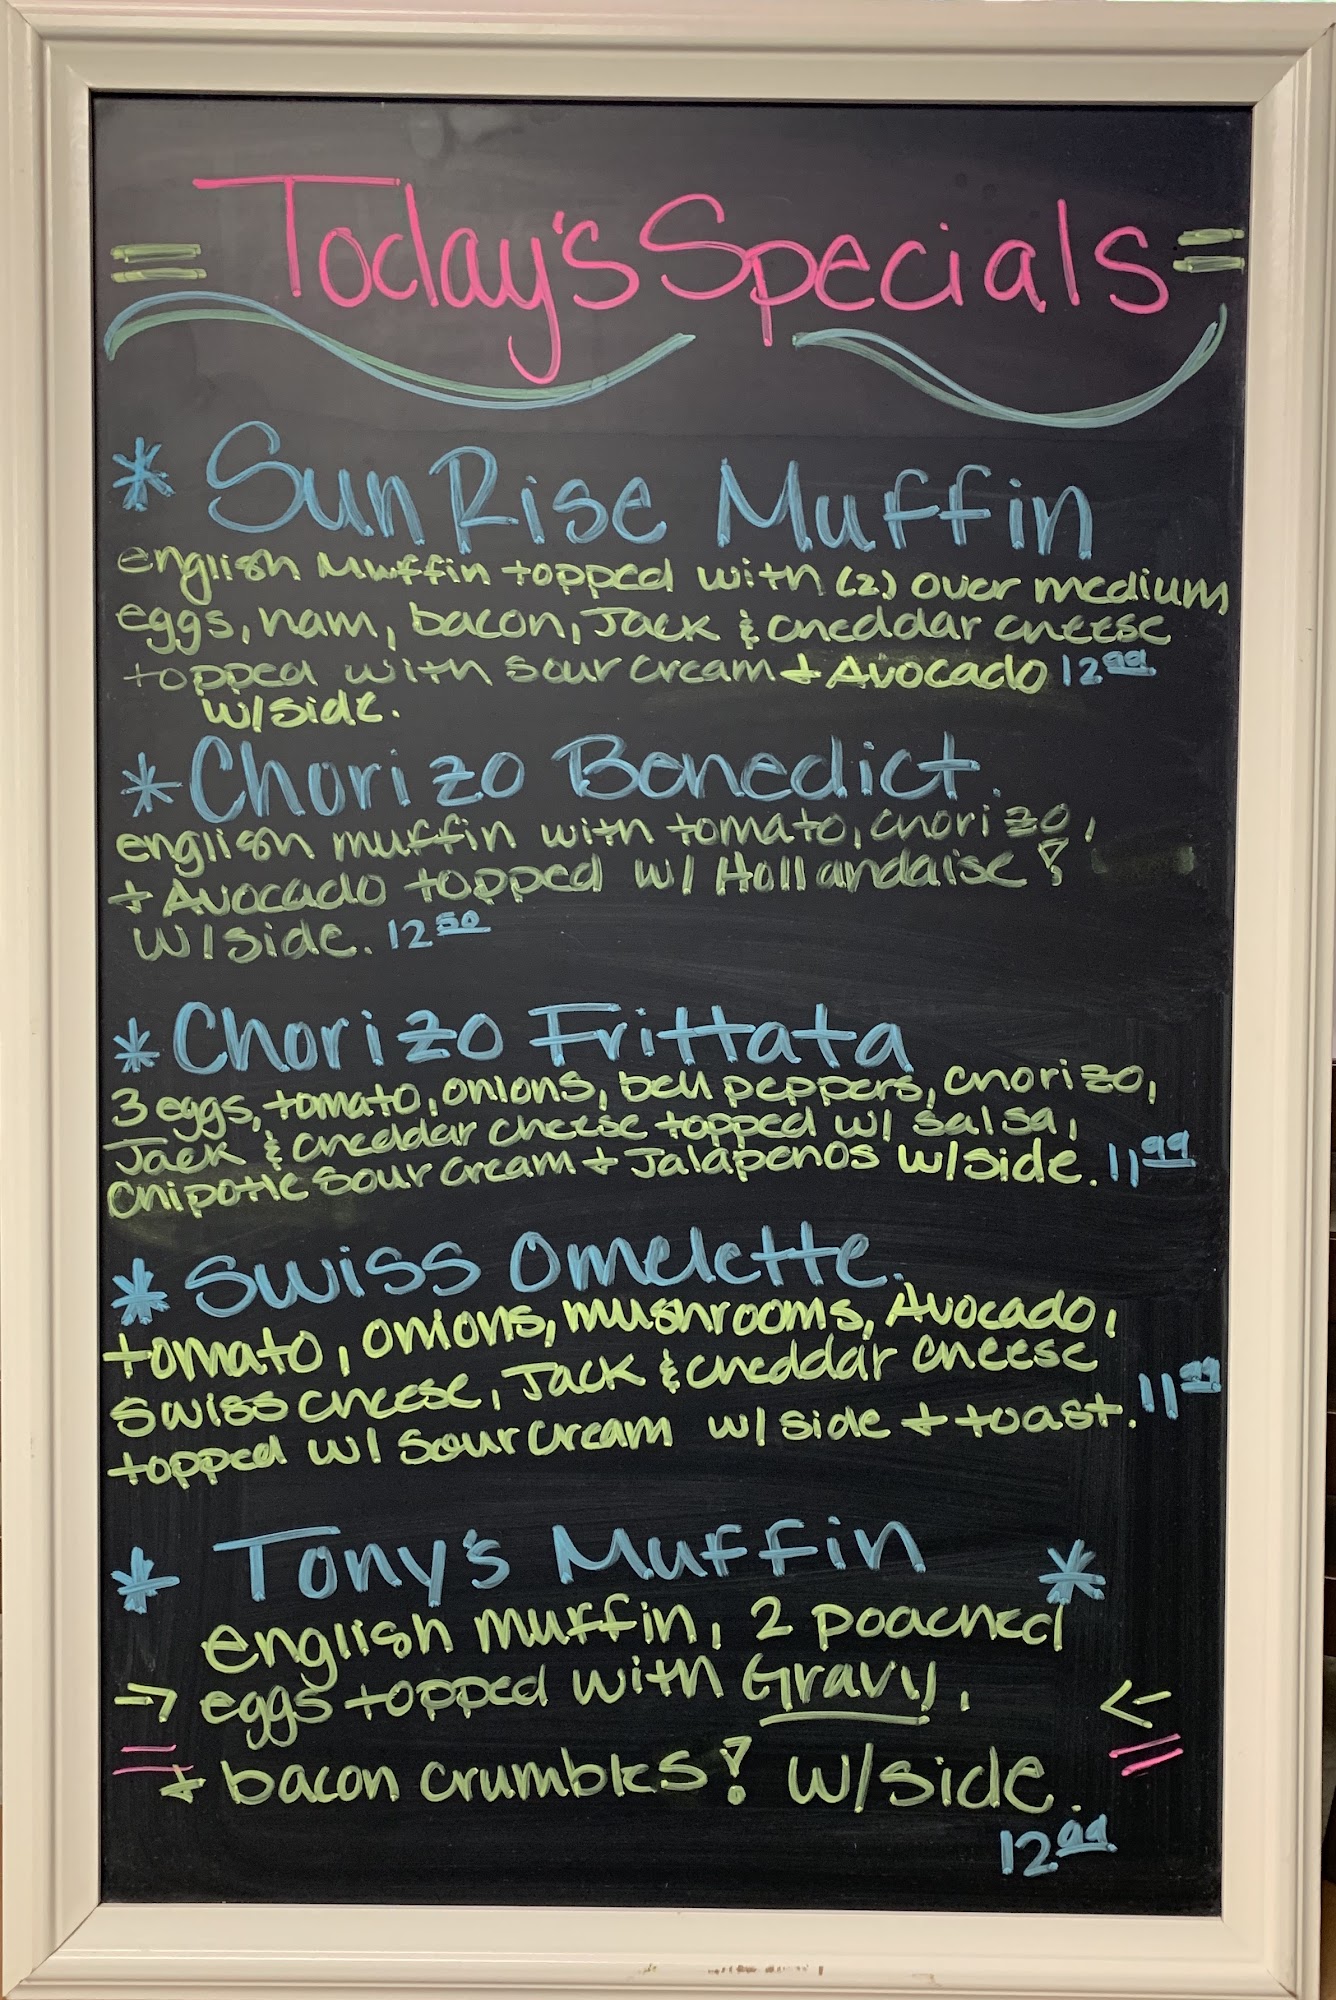 = Today's Specials =
* SunRise Muffin
english Muffin topped with (2) over medium
eggs, ham, bacon, Jack & cheddar cheese
topped with sour cream + Avocado 12.99
w/side.
* Chorizo Benedict.
english muffin with tomato, chorizo,
+ Avocado topped w/ Hollandaise!
w/side. 12.50
* Chorizo Frittata
3 eggs, tomato, onions, bell peppers, chorizo,
Jack & cheddar cheese topped w/ salsa,
Chipotle sour cream + Jalapenos w/side. 11.99
* Swiss Omelette.
tomato, onions, mushrooms, Avocado,
swiss cheese, Jack & cheddar cheese
topped w/ sour cream w/ side + toast. 11.99
* Tony's Muffin *
english muffin, 2 poached
eggs topped with Gravy,
+ bacon crumbles! w/side.
12.99